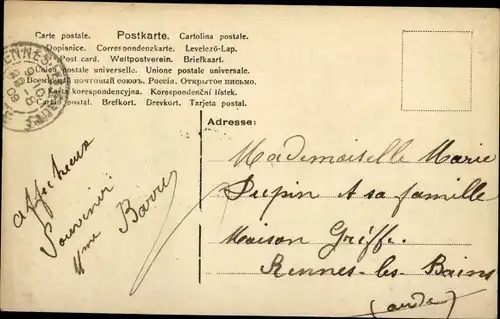 Carte postale. Postkarte. Cartolina postale.
Dopisnice. Correspondenzkarte. Levelező-Lap.
Post card. Weltpostverein. Briefkaart.
Union postale universelle. Unione postale universale.
Всемірный почтовый союзъ. Россія. Открытое письмо.
Karta korespondencyjna. Korespondenční lístek.
Cartão postal. Brefkort. Drevkort. Tarjeta postal.
RENNES
Adresse:
Mademoiselle Marie
Dupin & sa famille
Maison Griffe.
Rennes-les-Bains
(aude)
affectueux
Souvenir
Mme Barre